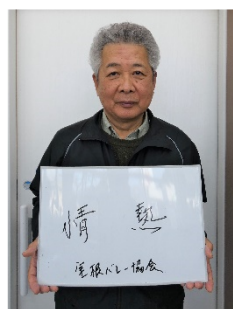 情熱
室根バレー協会